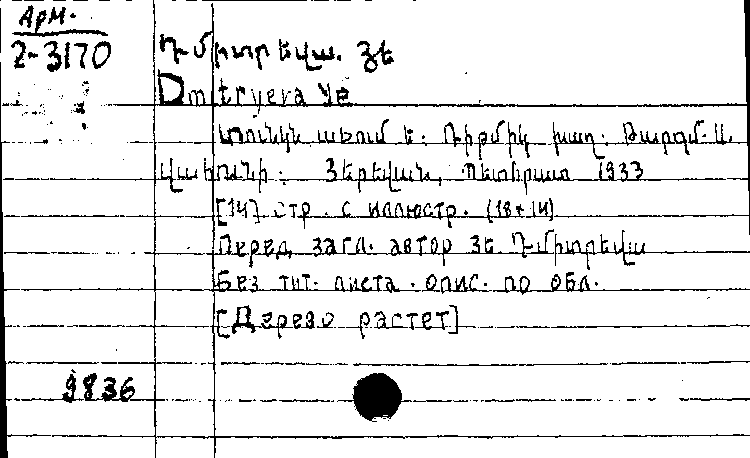 Арм.
2-3170
Դմիտրեվա. Յե
Dmitryeva Ye
Տունկն աճում է: Ռիթմիկ խաղ: Թարգմ. Ա.
Վանունի: Յերեվան, Պետհրատ 1933
[14] стр. с иллюстр. (18×14)
Перед загл. автор Յե. Դմիտրեվա
Без тит. листа. опис. по обл.
[Дерево растет]
9836